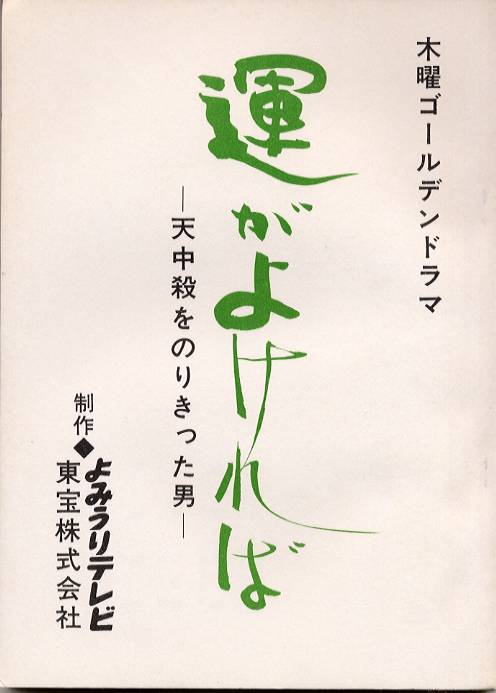 木曜ゴールデンドラマ
運がよければ
―天中殺をのりきった男―
制作◆よみうりテレビ
東宝株式会社